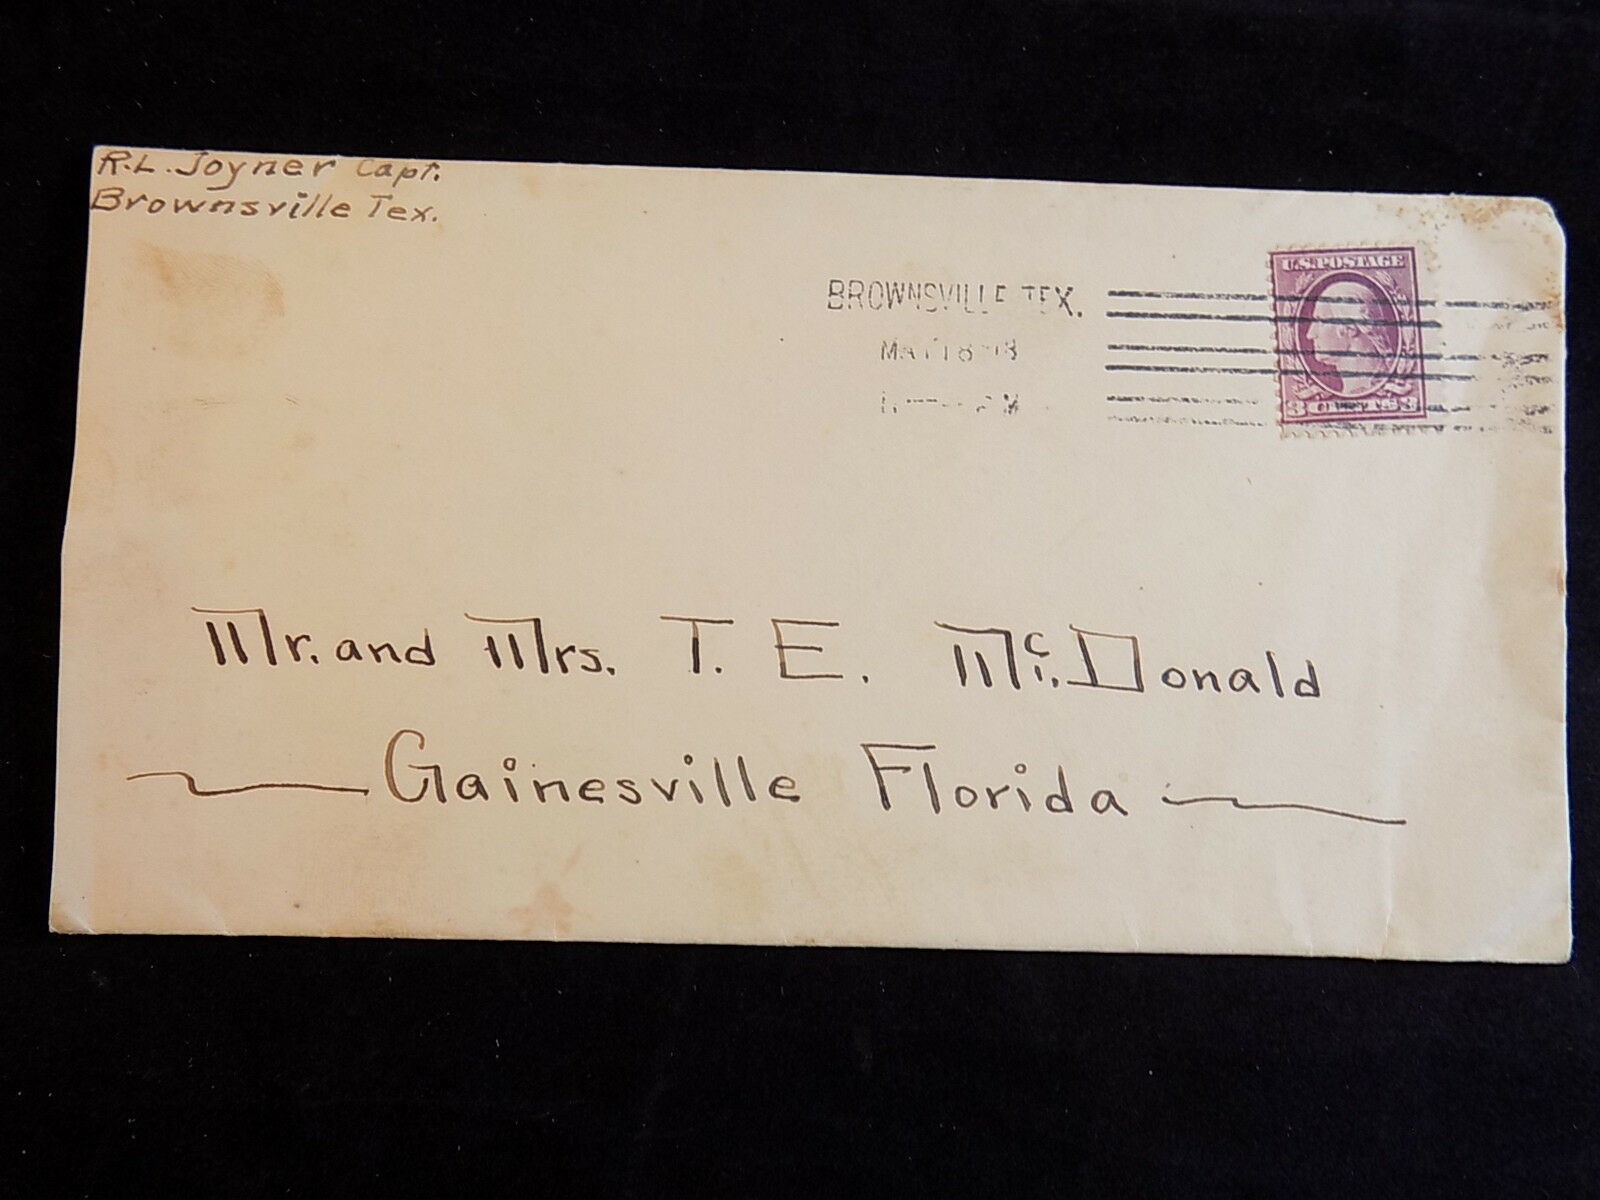 R.L. Joyner Capt.
Brownsville Tex.
BROWNSVILLE TEX.
MAY 18
U.S. POSTAGE
3 CENTS 3
Mr. and Mrs. T. E. Mc.Donald
Gainesville Florida